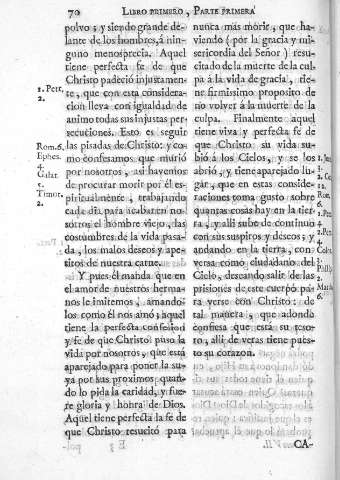 70 LIBRO PRIMERO, PARTE PRIMERA
polvo; y siendo grande de-
lante de los hombres, á nin-
guno menosprecia. Aquel
tiene perfecta fe de que
Christo padeció injustamen-
te, que con esta considera-
cion lleva con igualdad de
animo todas sus injustas per-
secuciones. Esto es seguir
las pisadas de Christo: y co-
mo confesamos que murió
por nosotros, asi havemos
de procurar morir por él es-
piritualmente, trabajando
cada dia para acabar en no-
sotros el hombre viejo, las
costumbres de la vida pasa-
da, los malos deseos y ape-
titos de nuestra carne.
Y pues él manda que en
el amor de nuestros herma-
nos le imitemos, amando-
los como él nos amó; aquel
tiene la perfecta confesion
y fe de que Christo puso la
vida por nosotros, que está
aparejado para poner la su-
ya por sus proximos, quan-
do lo pida la caridad, y fue-
re gloria y honra de Dios.
Aquel tiene perfecta la fe de
que Christo resucitó para
1. Petr.
2.
Rom. 6.
Ephes.
4.
Galat.
5.
Timot.
2.
nunca más morir, que ha-
viendo (por la gracia y mi-
sericordia del Señor) resuci-
tado de la muerte de la cul-
pa á la vida de gracia, tie-
ne firmissimo proposito de
no volver á la muerte de la
culpa. Finalmente aquel
tiene viva y perfecta fe de
que Christo su vida su-
bió á los Cielos, y se los
abrió, y tiene aparejado lu-
gar, que en estas conside-
raciones toma gusto sobre
quantas cosas hay en la tier-
ra, y alli sube de continuo
con sus suspiros y deseos; y
andando en la tierra, con-
versa como ciudadano del
Cielo, deseando salir de las
prisiones de este cuerpo pa-
ra verse con Christo: de
tal manera, que adonde
confiesa que está su teso-
ro, alli de veras tiene pues-
to su corazon.
CA-